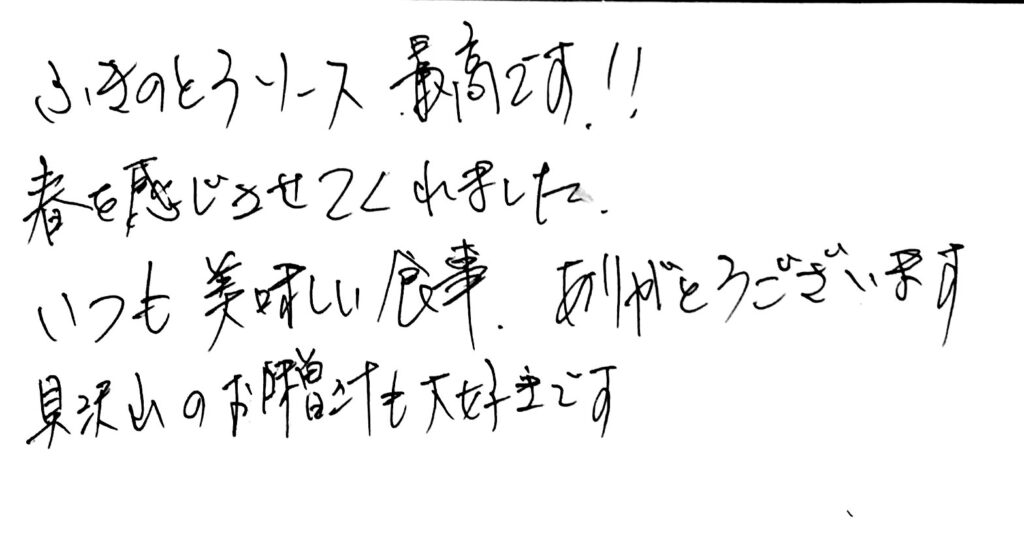 ふきのとうソース 最高です!!
春を感じさせてくれました.
いつも美味しい食事. ありがとうございます
具沢山のお味噌汁も大好きです